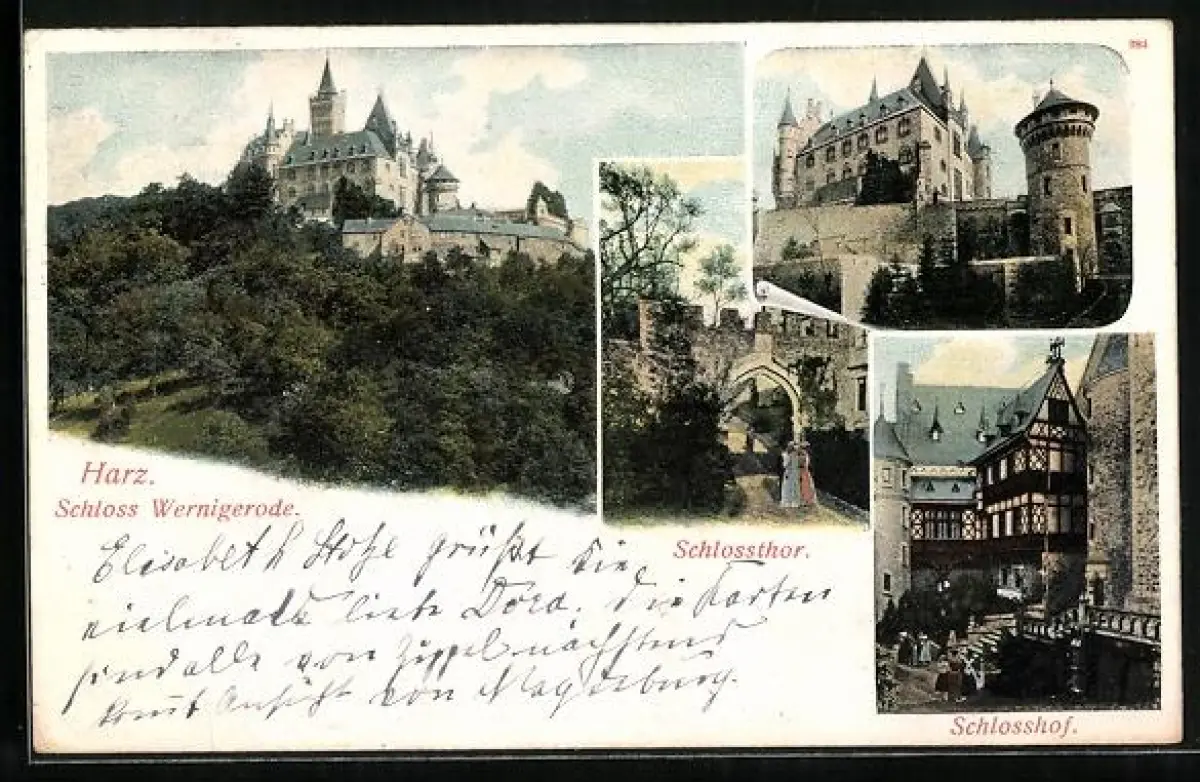 981
Harz.
Schloss Wernigerode.
Schlossthor.
Schlosshof.
Elisabeth Stolze grüßt Sie
vielmals liebe Dora. Die Karten
sind alle von nächstens
kommt Ansicht von Magdeburg.